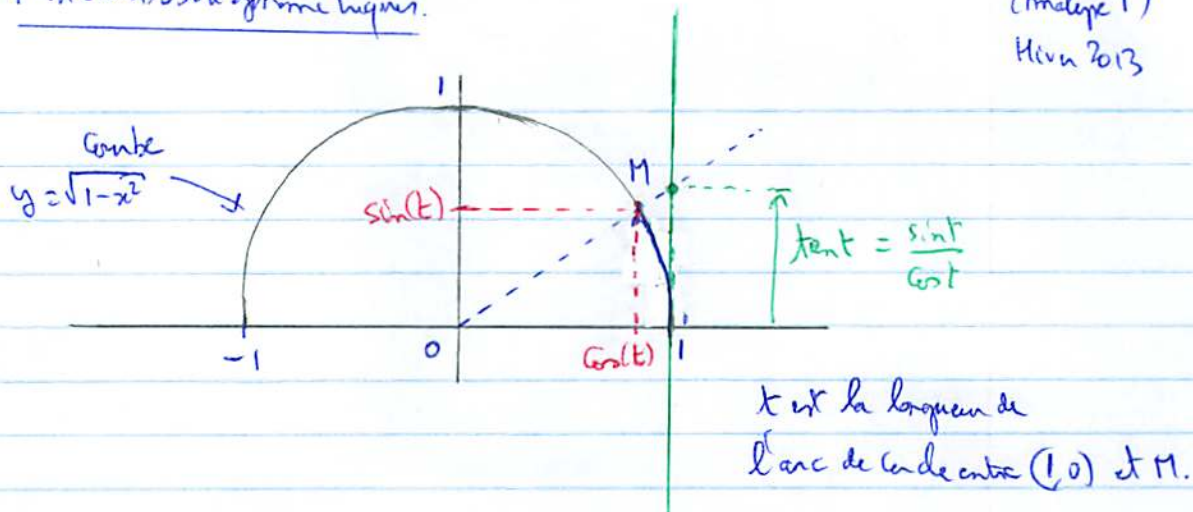 (Analyse 1)
Hiver 2013
1
Courbe
y = √(1-x²)
M
sin(t)
tan t = sin t / cos t
-1
0
cos(t)
1
t est la longueur de
l'arc de cercle entre (1,0) et M.